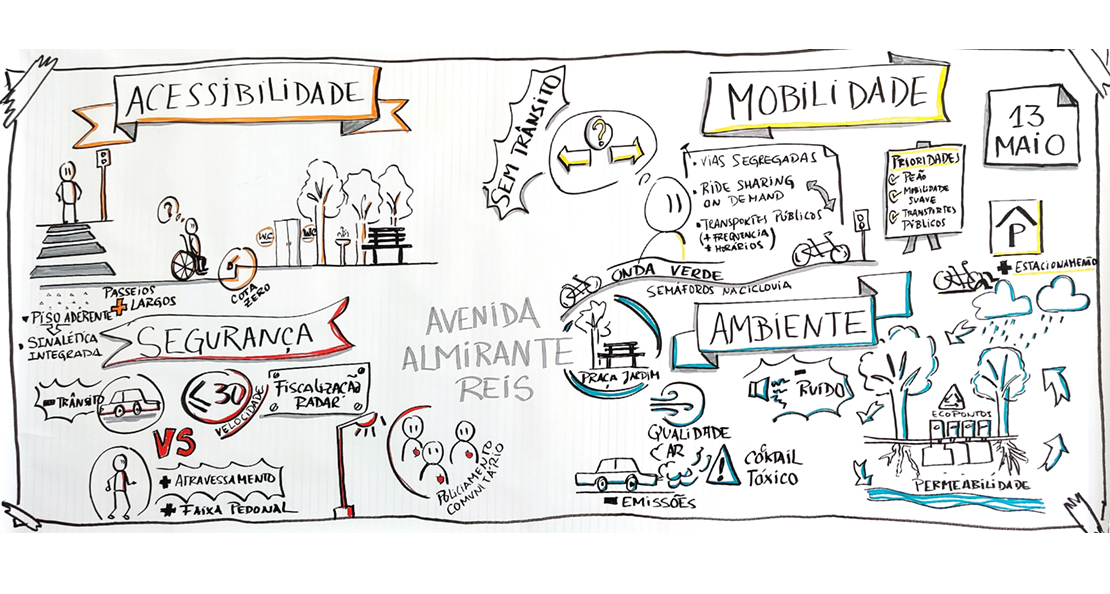 ACESSIBILIDADE
WC
WC
PASSEIOS
+ LARGOS
COTA
ZERO
PISO ADERENTE
• SINALÉTICA
INTEGRADA
SEGURANÇA
- TRÂNSITO
≤ 30
VELOCIDADE
FISCALIZAÇÃO
RADAR
VS
+ ATRAVESSAMENTO
+ FAIXA PEDONAL
POLICIAMENTO
COMUNITÁRIO
AVENIDA
ALMIRANTE
REIS
SEM TRÂNSITO
?
MOBILIDADE
• VIAS SEGREGADAS
• RIDE SHARING
ON DEMAND
• TRANSPORTES PÚBLICOS
(+ FREQUENCIA)
+ HORÁRIOS)
ONDA VERDE
SEMÁFOROS NA CICLOVIA
PRIORIDADES
PEÃO
MOBILIDADE
SUAVE
TRANSPORTES
PÚBLICOS
13
MAIO
P
+ ESTACIONAMENTO
AMBIENTE
PRAÇA JARDIM
- RUÍDO
QUALIDADE
AR
CÓKTAIL
TÓXICO
- EMISSÕES
ECOPONTOS
PERMEABILIDADE